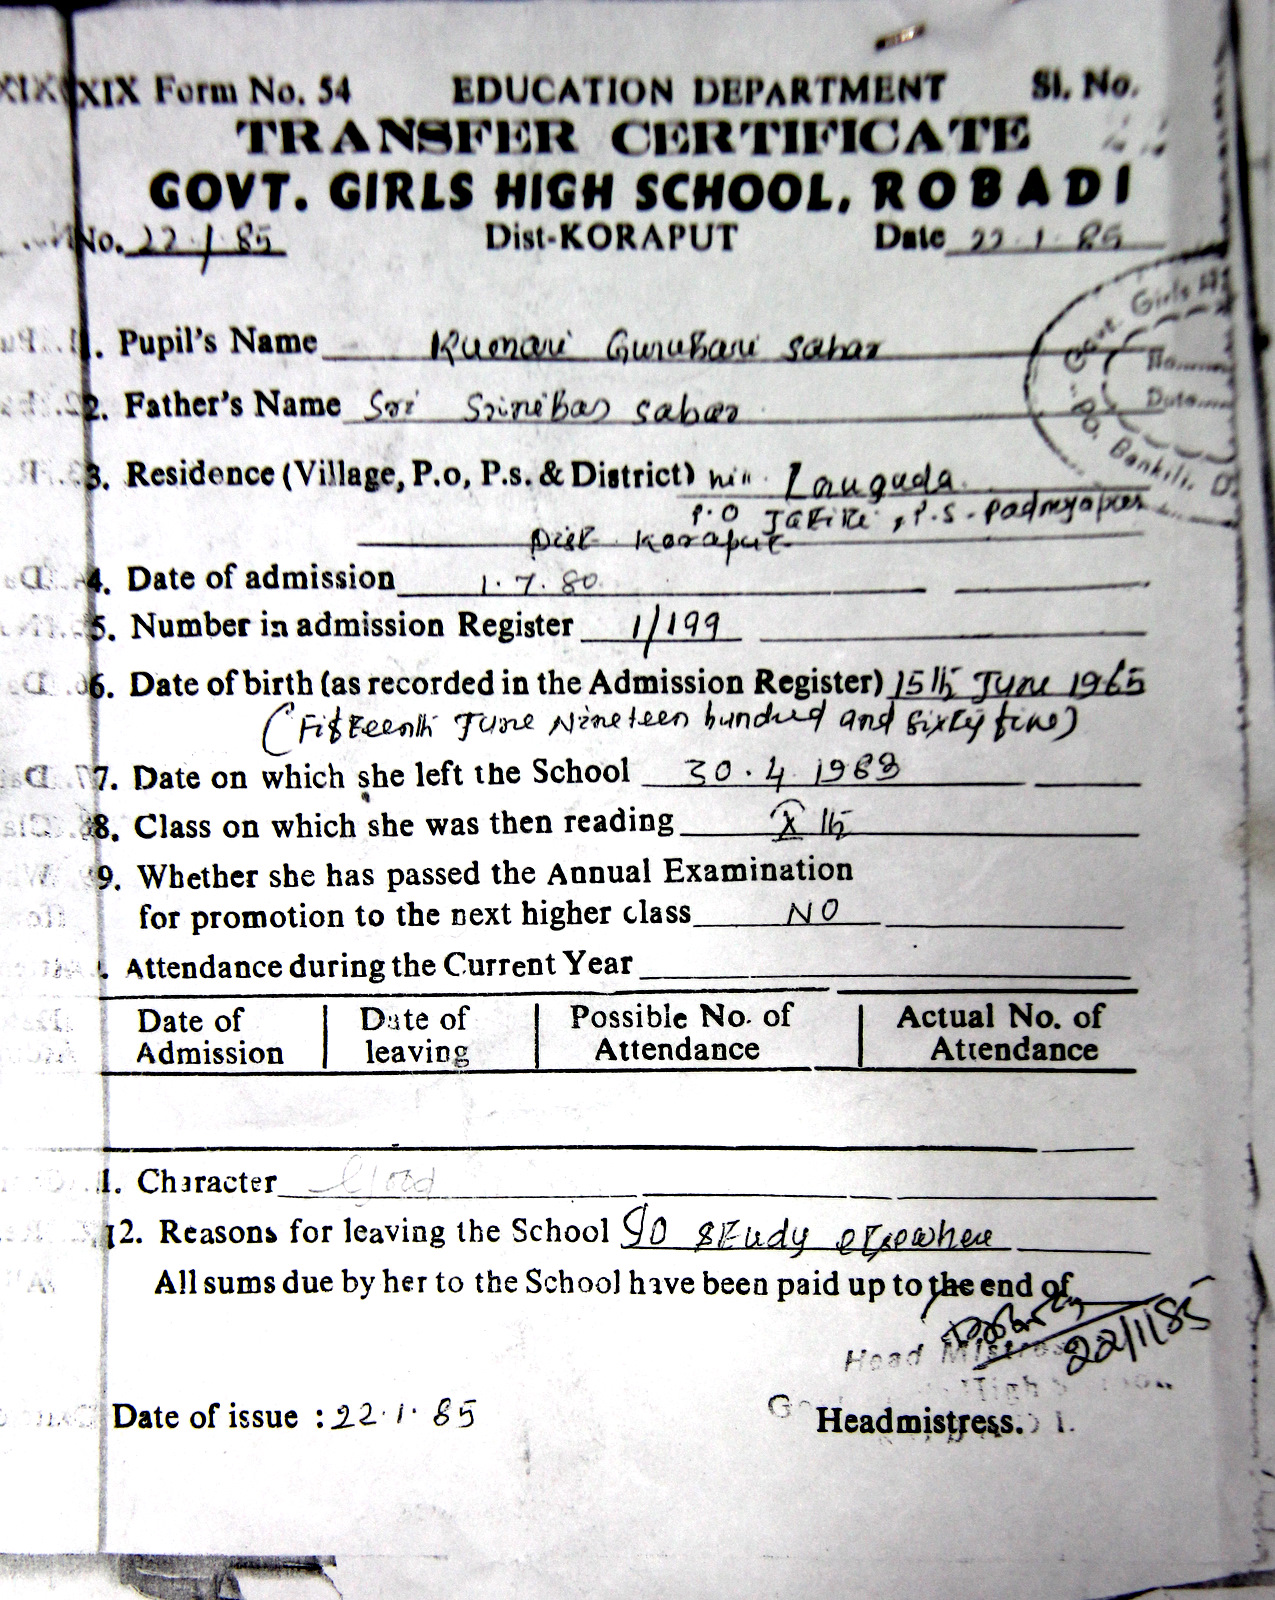 XIX XIX Form No. 54 EDUCATION DEPARTMENT Sl. No.
TRANSFER CERTIFICATE
GOVT. GIRLS HIGH SCHOOL, ROBADI
No. 22.1.85 Dist-KORAPUT Date 22.1.85
Govt. Girls H
No......
Date.....
P.O. Bankili, D
1. Pupil's Name Kumari Gurubari Sabar
2. Father's Name Sri Srinibas Sabar
3. Residence (Village, P.o, P.s. & District) Vill. Languda
P.O , P.S. - Padmapur
Dist- Koraput
4. Date of admission 1.7.80
5. Number in admission Register 1/199
6. Date of birth (as recorded in the Admission Register) 15th June 1965
(Fifteenth June Nineteen hundred and sixty five)
7. Date on which she left the School 30.4.1983
8. Class on which she was then reading X th
9. Whether she has passed the Annual Examination
for promotion to the next higher class NO
. Attendance during the Current Year
Date of Admission Date of leaving Possible No. of Attendance Actual No. of Attendance
1. Character Good
12. Reasons for leaving the School go study elsewhere
All sums due by her to the School have been paid up to the end of
22/1/85
Head Mistress
High
Date of issue : 22.1.85 Headmistress.